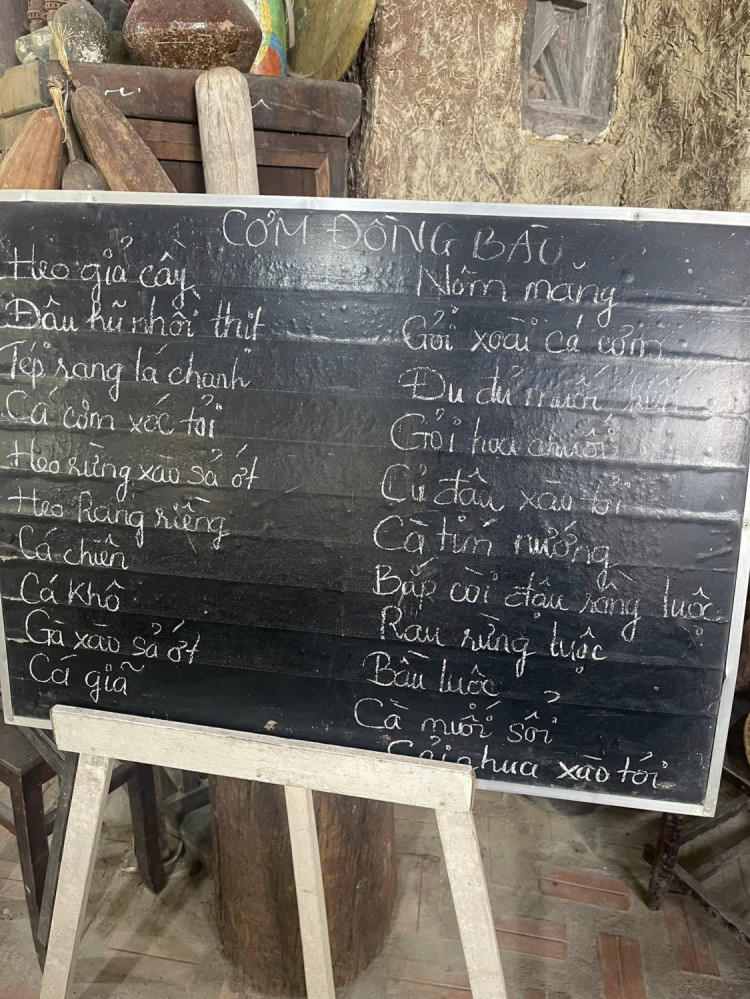 CƠM ĐỒNG BÀO
Heo giả cầy
Đậu hũ nhồi thịt
Tép rang lá chanh
Cá cơm xóc tỏi
Heo rừng xào sả ớt
Heo Rang riềng
Cá chiên
Cá Khô
Gà xào sả ớt
Cá giã
Nộm măng
Gỏi xoài cá cơm
Đu đủ muối
Gỏi hoa chuối
Củ đậu xào tỏi
Cà tím nướng
Bắp còi đậu rồng luộc
Rau rừng luộc
Bầu luộc
Cà muối sổi
chua xào tỏi